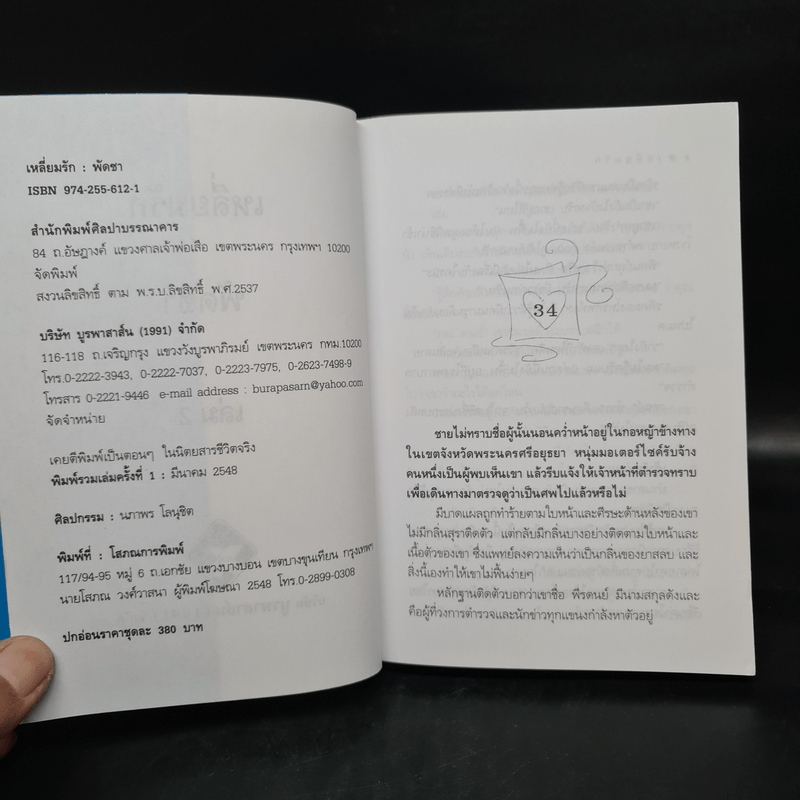 เหลี่ยมรัก : พัดชา
ISBN 974-255-612-1
สำนักพิมพ์ศิลปาบรรณาคาร
84 ถ.อัษฎางค์ แขวงศาลเจ้าพ่อเสือ เขตพระนคร กรุงเทพฯ 10200
จัดพิมพ์
สงวนลิขสิทธิ์ ตาม พ.ร.บ.ลิขสิทธิ์ พ.ศ.2537
บริษัท บูรพาสาส์น (1991) จำกัด
116-118 ถ.เจริญกรุง แขวงวังบูรพาภิรมย์ เขตพระนคร กทม.10200
โทร.0-2222-3943, 0-2222-7037, 0-2223-7975, 0-2623-7498-9
โทรสาร 0-2221-9446 e-mail address : burapasarn@yahoo.com
จัดจำหน่าย
เคยตีพิมพ์เป็นตอนๆ ในนิตยสารชีวิตจริง
พิมพ์รวมเล่มครั้งที่ 1 : มีนาคม 2548
ศิลปกรรม : นภาพร โสนุชิต
พิมพ์ที่ : โสภณการพิมพ์
117/94-95 หมู่ 6 ถ.เอกชัย แขวงบางบอน เขตบางขุนเทียน กรุงเทพฯ
นายโสภณ วงศ์วาสนา ผู้พิมพ์โฆษณา 2548 โทร.0-2899-0308
ปกอ่อนราคาชุดละ 380 บาท
34
ชายไม่ทราบชื่อผู้นั้นนอนคว่ำหน้าอยู่ในกอหญ้าข้างทาง
ในเขตจังหวัดพระนครศรีอยุธยา หนุ่มมอเตอร์ไซค์รับจ้าง
คนหนึ่งเป็นผู้พบเห็นเขา แล้วรีบแจ้งให้เจ้าหน้าที่ตำรวจทราบ
เพื่อเดินทางมาตรวจดูว่าเป็นศพไปแล้วหรือไม่
มีบาดแผลถูกทำร้ายตามใบหน้าและศีรษะด้านหลังของเขา
ไม่มีกลิ่นสุราติดตัว แต่กลับมีกลิ่นบางอย่างติดตามใบหน้าและ
เนื้อตัวของเขา ซึ่งแพทย์ลงความเห็นว่าเป็นกลิ่นของยาสลบ และ
สิ่งนี้เองทำให้เขาไม่ฟื้นง่ายๆ
หลักฐานติดตัวบอกว่าเขาชื่อ พีรดนย์ มีนามสกุลดังและ
คือผู้ที่วงการตำรวจและนักข่าวทุกแขนงกำลังหาตัวอยู่